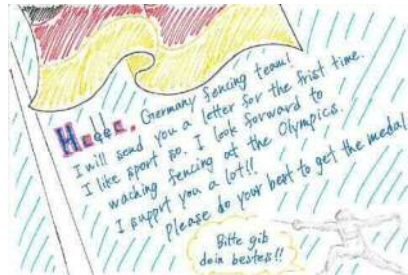 Hello, Gnermany fencing team!
I will send you a letter for the frist time.
I like sport so. I look forward to
waching fencing at the Olympics.
I supprt you a lot!!
Please do your best to get the medal
Bitte gib
dein bestes!!